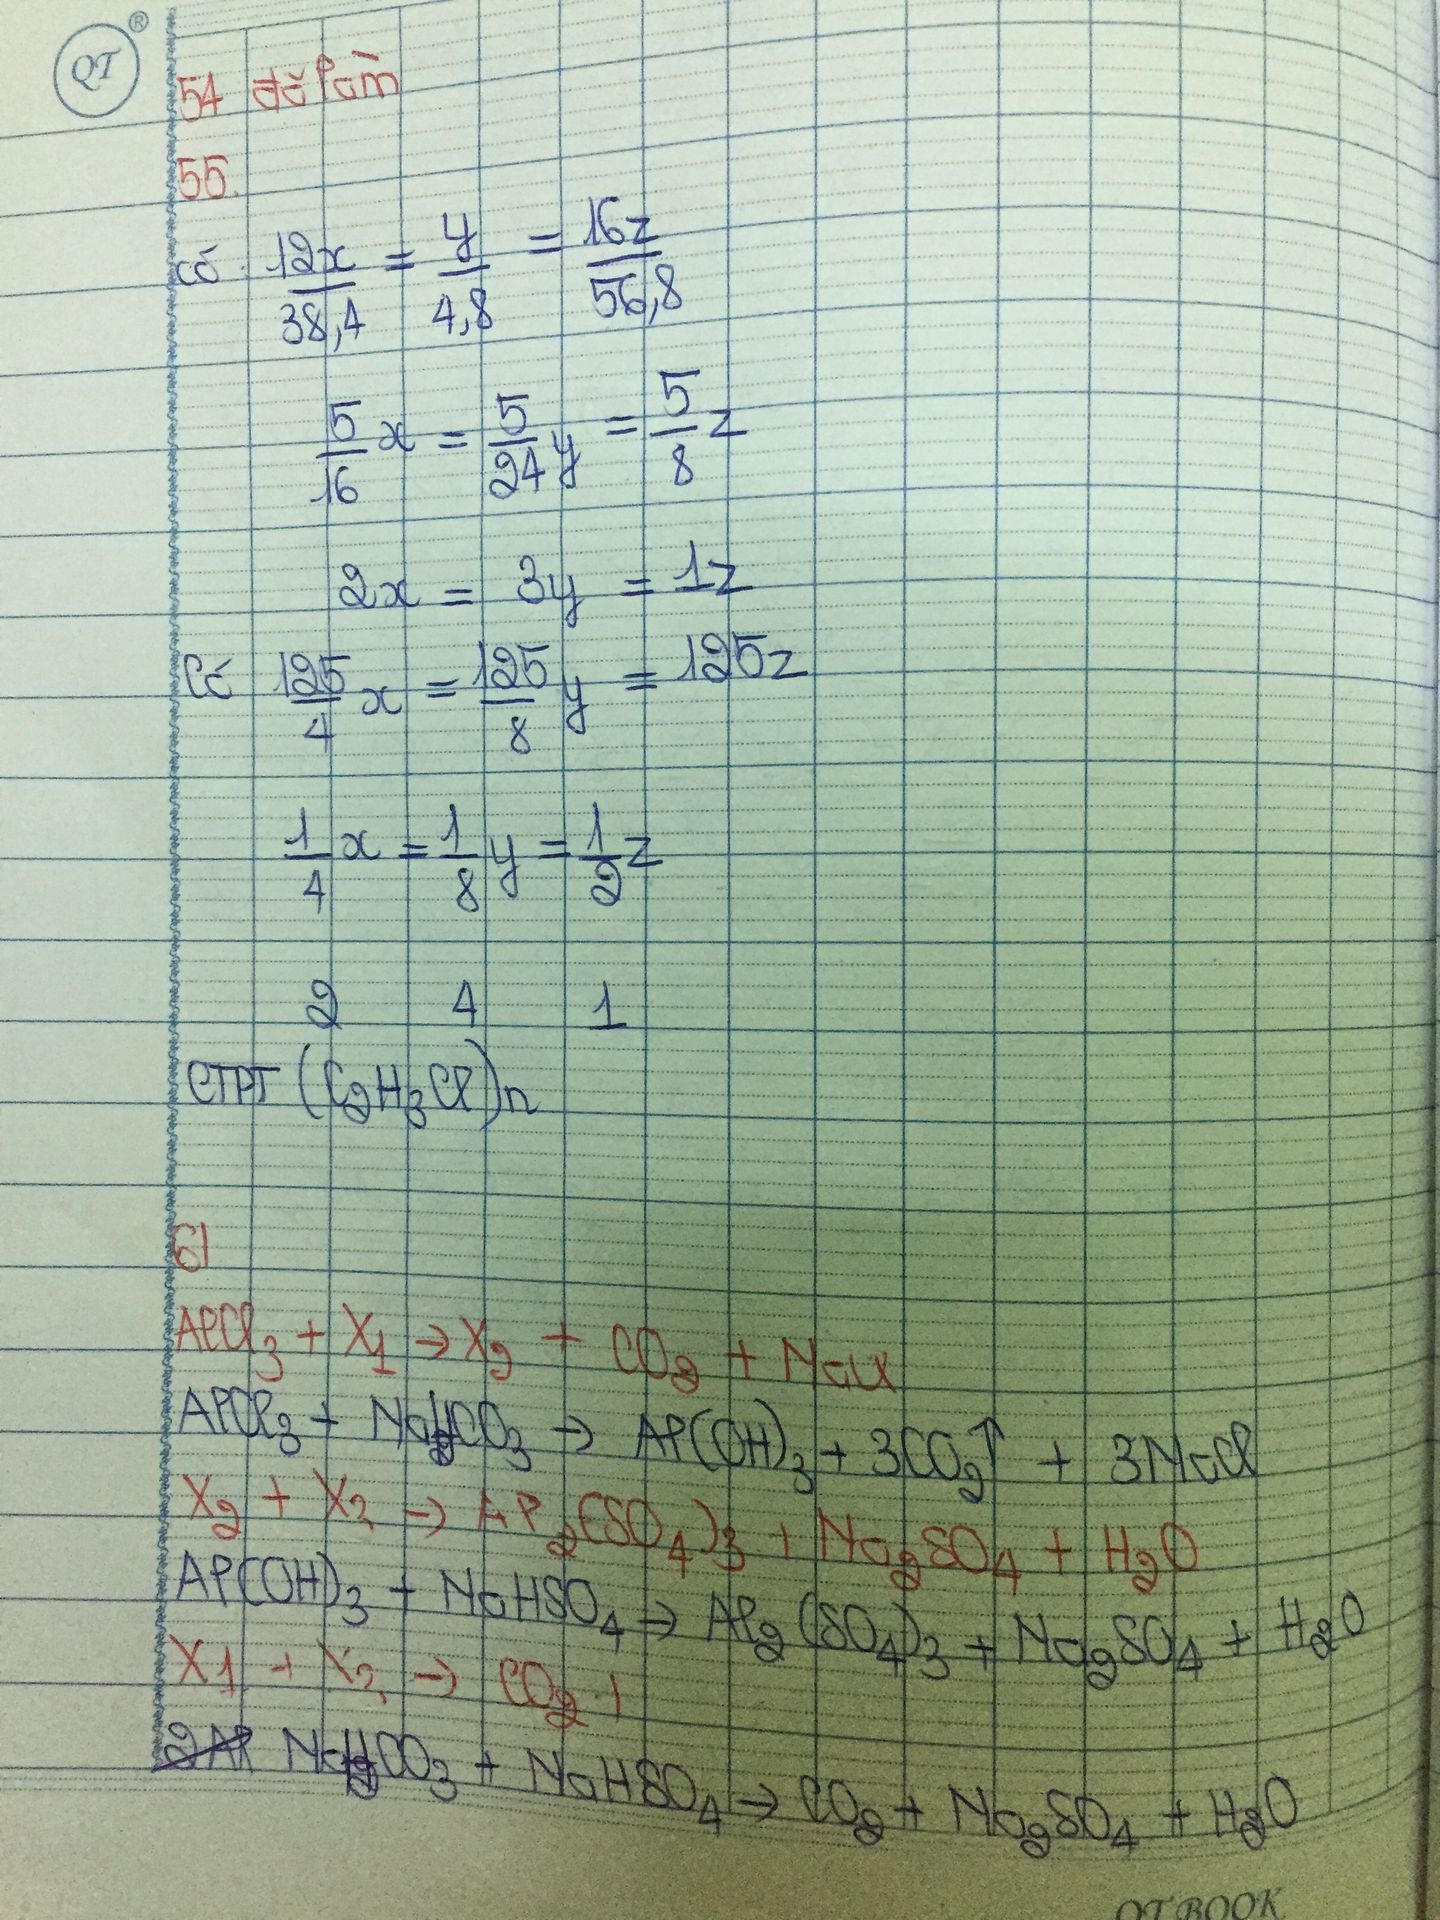 QT ®
54 đã làm
55.
Có: 12x/38,4 = y/4,8 = 16z/56,8
5/16 x = 5/24 y = 5/8 z
2x = 3y = 1z
Có 125/4 x = 125/8 y = 125z
1/4 x = 1/8 y = 1/2 z
2 4 1
CTPT (C₂H₃Cl)n
61
AlCl₃ + X₁ → X₂ + CO₂ + NaCl
AlCl₃ + NaHCO₃ → Al(OH)₃ + 3CO₂↑ + 3NaCl
X₂ + X₃ → Al₂(SO₄)₃ + Na₂SO₄ + H₂O
Al(OH)₃ + NaHSO₄ → Al₂(SO₄)₃ + Na₂SO₄ + H₂O
X₁ + X₃ → CO₂ +
NaHCO₃ + NaHSO₄ → CO₂ + Na₂SO₄ + H₂O
QT BOOK